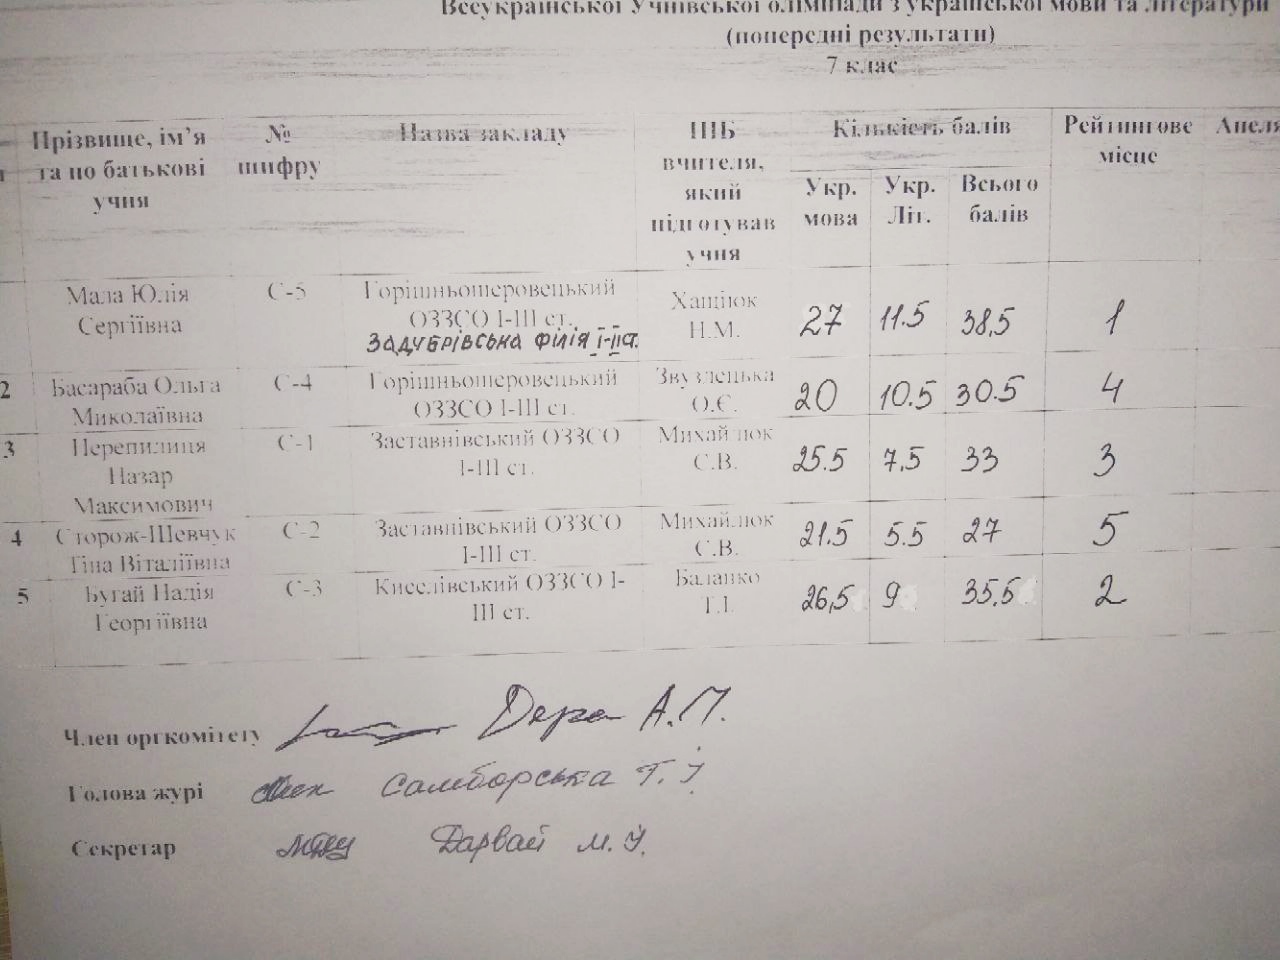 Всеукраїнської Учнівської олімпіади з української мови та літератури
(попередні результати)
7 клас
Прізвище, ім’я та по батькові учня | № шифру | Назва закладу | ПІБ вчителя, який підготував учня | Кількість балів | Рейтингове місце
Укр. мова | Укр. Літ. | Всього балів
Мала Юлія Сергіївна | С-5 | Горішньошеровецький ОЗЗСО І-ІІІ ст. ЗАДУБРІВСЬКА ФІЛІЯ І-ІІ ст. | Хащіюк Н.М. | 27 | 11.5 | 38,5 | 1
2 | Басараба Ольга Миколаївна | С-4 | Горішньошеровецький ОЗЗСО І-ІІІ ст. | О.Є. | 20 | 10.5 | 30.5 | 4
3 | Перепилиця Назар Максимович | С-1 | Заставнівський ОЗЗСО І-ІІІ ст. | Михайлюк С.В. | 25.5 | 7,5 | 33 | 3
4 | Сторож-Шевчук Тіна Віталіївна | С-2 | Заставнівський ОЗЗСО І-ІІІ ст. | Михайлюк С.В. | 21.5 | 5.5 | 27 | 5
5 | Бугай Надія Георгіївна | С-3 | Киселівський ОЗЗСО І-ІІІ ст. | Баланко Т.І. | 26,5 | 9 | 35,5 | 2
Член оргкомітету А.П.
Голова журі Самборська Т.І.
Секретар Дарвай М.І.